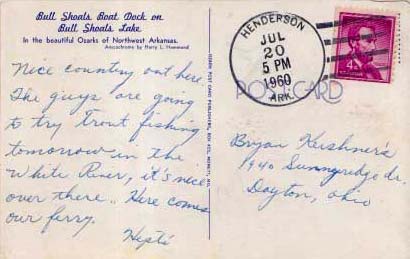 Bull Shoals Boat Dock on
Bull Shoals Lake
In the beautiful Ozarks of Northwest Arkansas.
Anscochrome by Harry L. Hammond
Nice country out here
The guys are going
to try Trout fishing
tomorrow in the
White River, it's nice
over there. Here comes
our ferry.
HENDERSON
JUL
20
5 PM
1960
ARK.
POST CARD
4¢
Bryan Kershner's
1940 Sunnyridge dr.
Dayton, Ohio